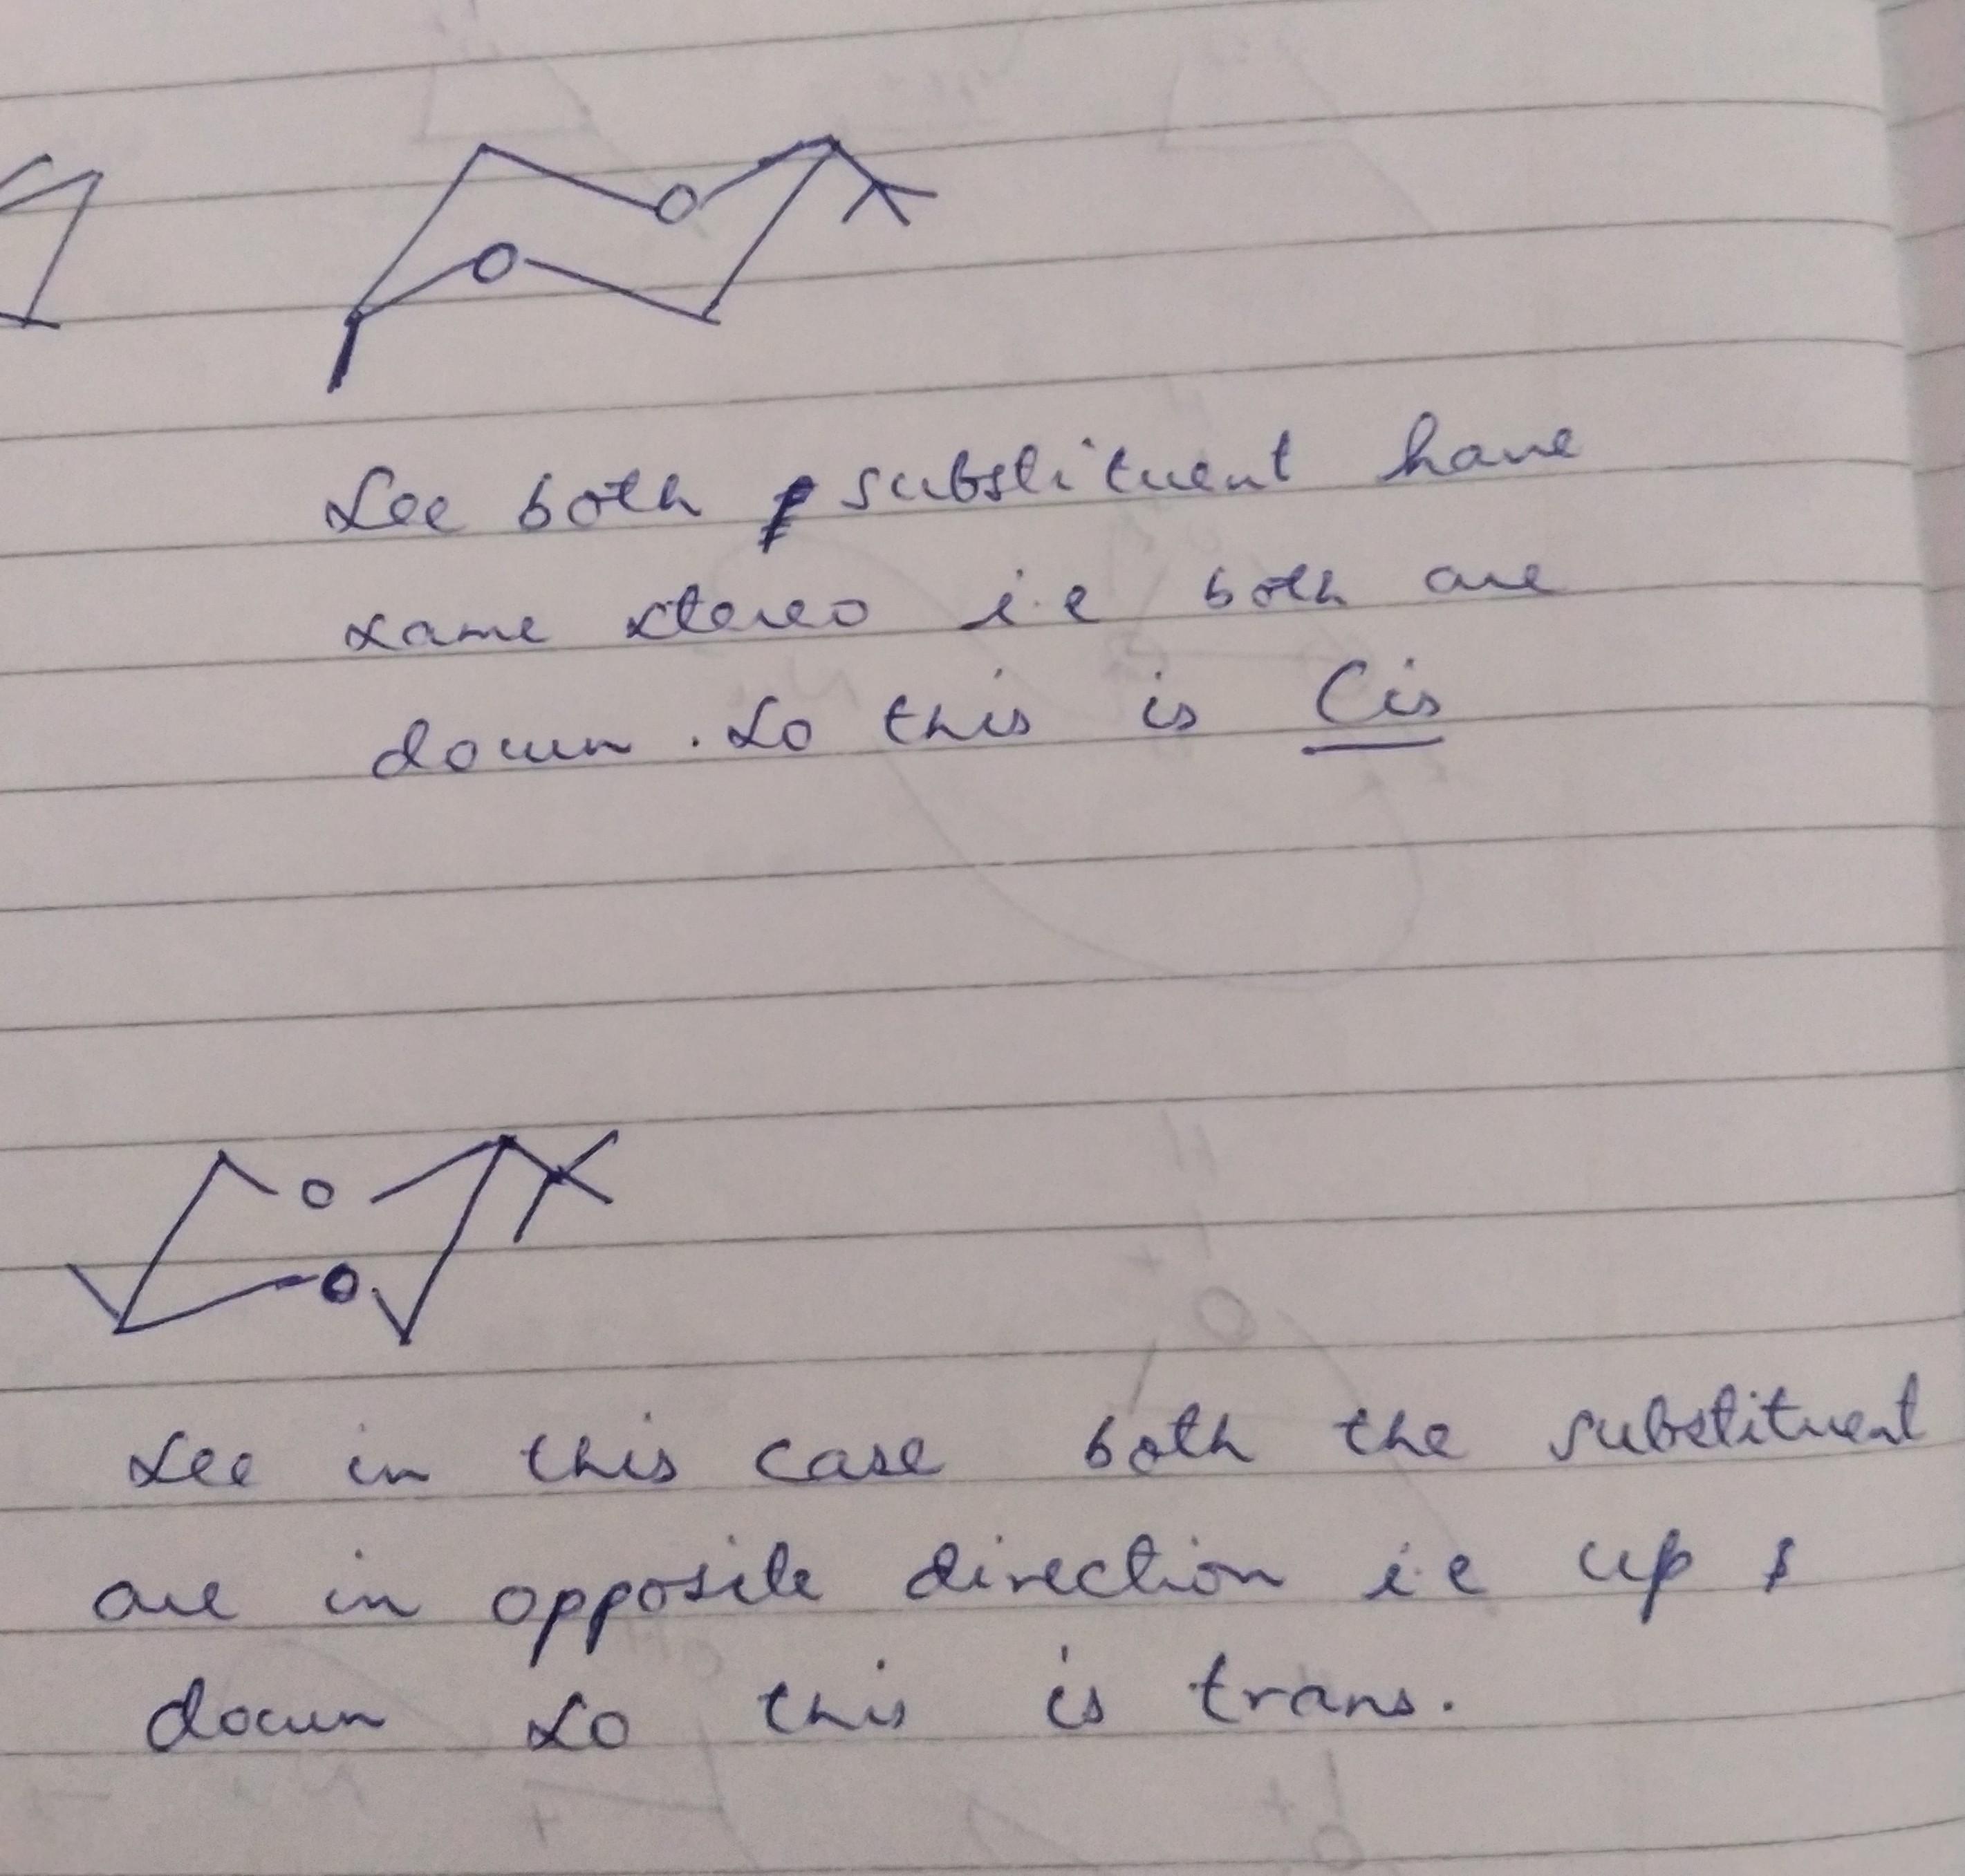 O
O
See both substituent have
same stereo i.e both are
down. So this is Cis
O
O
See in this case both the substituent
are in opposite direction i.e up &
down so this is trans.